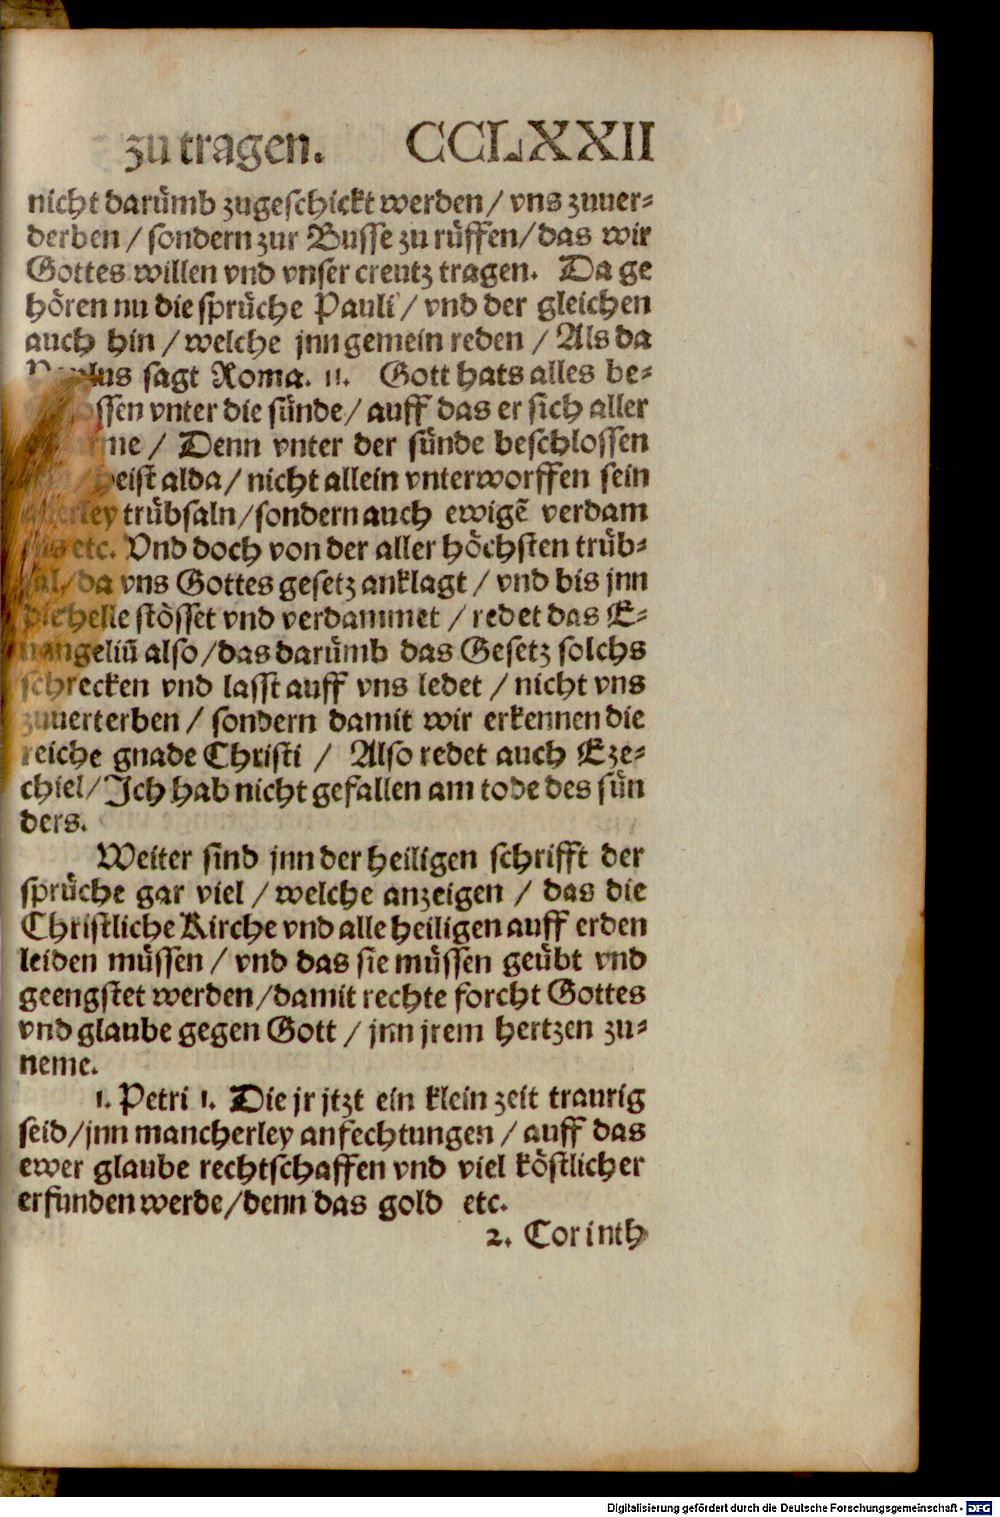 zu tragen. CCLXXII
nicht darümb zugeschickt werden / vns zuuer-
derben / sondern zur Busse zu rüffen / das wir
Gottes willen vnd vnser creutz tragen. Da ge
hören nu die sprüche Pauli / vnd der gleichen
auch hin / welche jnn gemein reden / Als da
sagt Roma. 11. Gott hats alles be-
vnter die sünde / auff das er sich aller
/ Denn vnter der sünde beschlossen
heist alda / nicht allein vnterworffen sein
trübsaln / sondern auch ewigē verdam
etc. Vnd doch von der aller höchsten trüb-
sal / da vns Gottes gesetz anklagt / vnd bis jnn
die helle stösset vnd verdammet / redet das E-
uangeliū also / das darümb das Gesetz solchs
schrecken vnd lasst auff vns ledet / nicht vns
zuuerterben / sondern damit wir erkennen die
reiche gnade Christi / Also redet auch Eze-
chiel / Ich hab nicht gefallen am tode des sün
ders.
Weiter sind jnn der heiligen schrifft der
sprüche gar viel / welche anzeigen / das die
Christliche Kirche vnd alle heiligen auff erden
leiden müssen / vnd das sie müssen geübt vnd
geengstet werden / damit rechte forcht Gottes
vnd glaube gegen Gott / jnn jrem hertzen zu-
neme.
1. Petri 1. Die jr jtzt ein klein zeit traurig
seid / jnn mancherley anfechtungen / auff das
ewer glaube rechtschaffen vnd viel köstlicher
erfunden werde / denn das gold etc.
2. Corinth
Digitalisierung gefördert durch die Deutsche Forschungsgemeinschaft - DFG